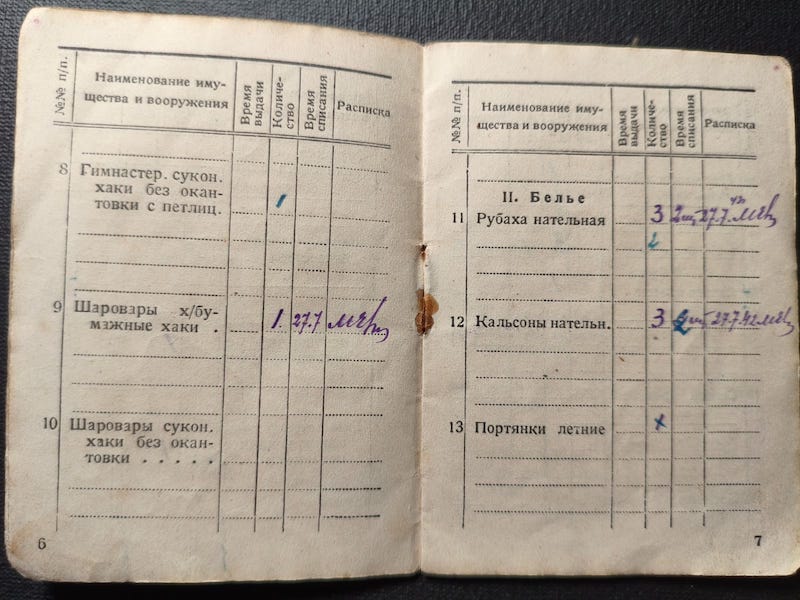 №№ п/п.
Наименование иму-
щества и вооружения
Время
выдачи
Количе-
ство
Время
списания
Расписка
8 Гимнастер. сукон.
хаки без окан-
товки с петлиц. 1
9 Шаровары х/бу-
мажные хаки . 1. 27.7
10 Шаровары сукон.
хаки без окан-
товки . . . . .
6
№№ п/п.
Наименование иму-
щества и вооружения
Время
выдачи
Количе-
ство
Время
списания
Расписка
II. Белье
11 Рубаха нательная 3 2шт 27.7. 42
2
12 Кальсоны нательн. 3 2шт 27.7.42
13 Портянки летние х
7